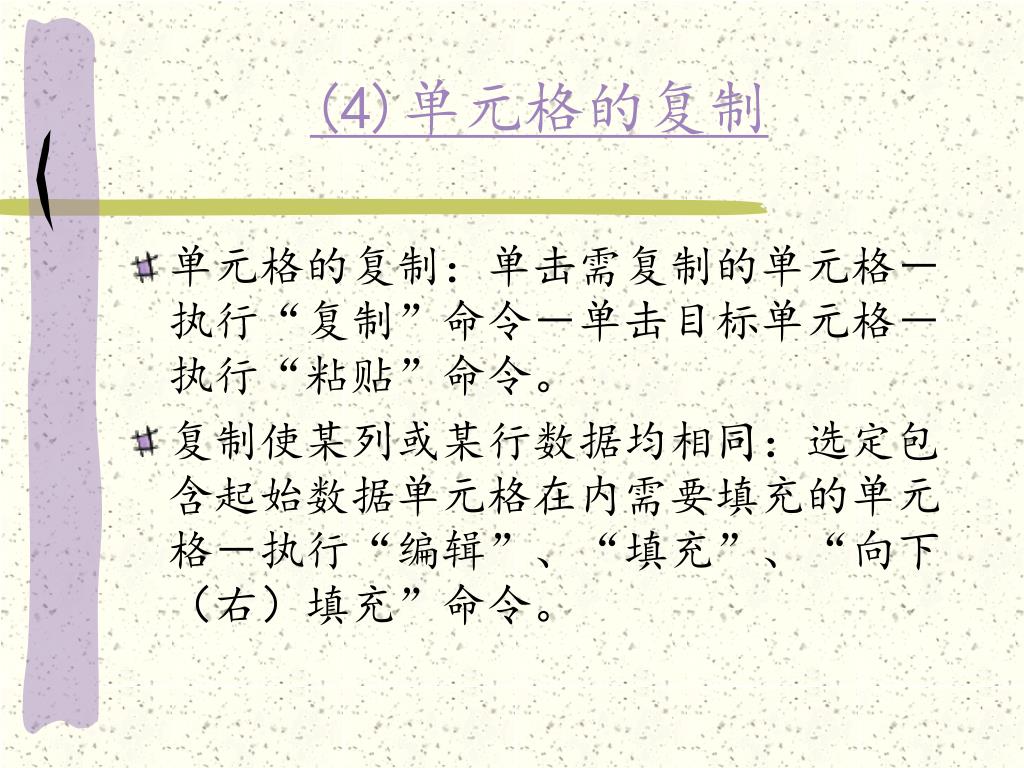 (4)单元格的复制
单元格的复制：单击需复制的单元格－
执行“复制”命令－单击目标单元格－
执行“粘贴”命令。
复制使某列或某行数据均相同：选定包
含起始数据单元格在内需要填充的单元
格－执行“编辑”、“填充”、“向下
（右）填充”命令。